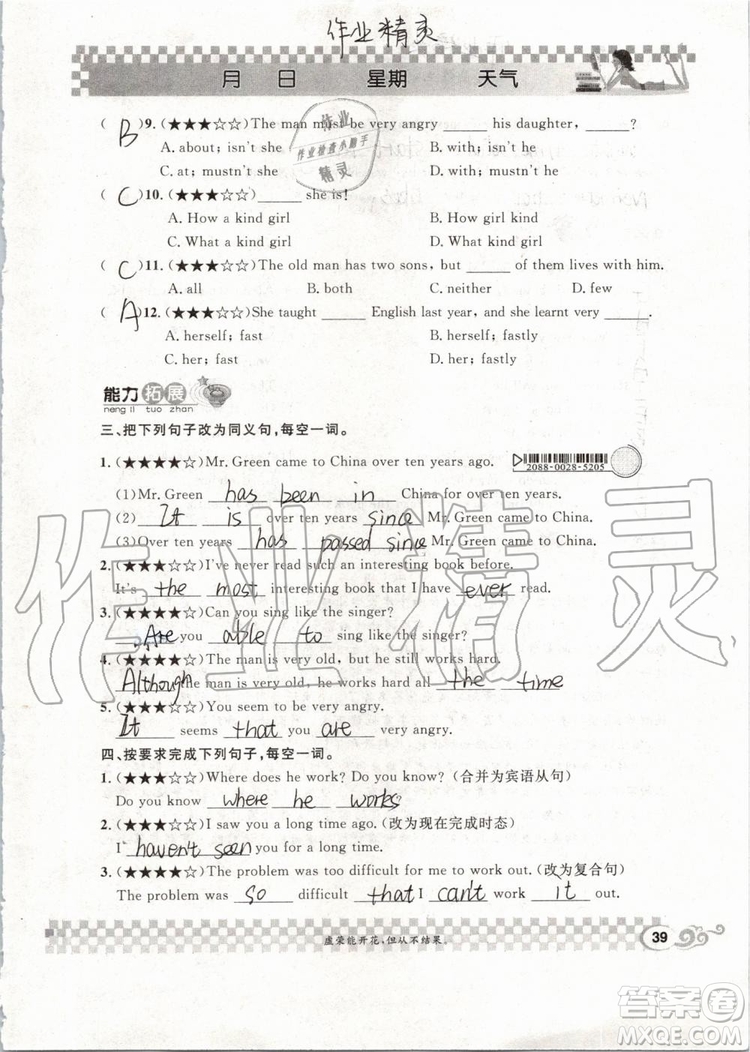 作业精灵
月 日 星期 天气
( B )9. (★★★☆☆)The man must be very angry _____ his daughter, _____?
A. about; isn't she B. with; isn't he
C. at; mustn't she D. with; mustn't he
( C )10. (★★★☆☆)_____ she is!
A. How a kind girl B. How girl kind
C. What a kind girl D. What kind girl
( C )11. (★★★☆☆)The old man has two sons, but _____ of them lives with him.
A. all B. both C. neither D. few
( A )12. (★★★☆☆)She taught _____ English last year, and she learnt very _____.
A. herself; fast B. herself; fastly
C. her; fast D. her; fastly
作业
作业检查小助手
精灵
能力拓展
neng li tuo zhan
三、把下列句子改为同义句,每空一词。
1. (★★★★☆)Mr. Green came to China over ten years ago.
2088-0028-5205
(1)Mr. Green has been in China for over ten years.
(2) It is over ten years since Mr. Green came to China.
(3)Over ten years has passed since Mr. Green came to China.
2. (★★★★☆)I've never read such an interesting book before.
It's the most interesting book that I have ever read.
3. (★★★★☆)Can you sing like the singer?
Are you able to sing like the singer?
4. (★★★★☆)The man is very old, but he still works hard.
Although the man is very old, he works hard all the time.
5. (★★★★☆)You seem to be very angry.
It seems that you are very angry.
四、按要求完成下列句子,每空一词。
1. (★★★☆☆)Where does he work? Do you know? (合并为宾语从句)
Do you know where he works?
2. (★★★☆☆)I saw you a long time ago. (改为现在完成时态)
I haven't seen you for a long time.
3. (★★★★☆)The problem was too difficult for me to work out. (改为复合句)
The problem was so difficult that I can't work it out.
作业精灵
虚荣能开花,但从不结果。
39
答案圈
MXQE.COM